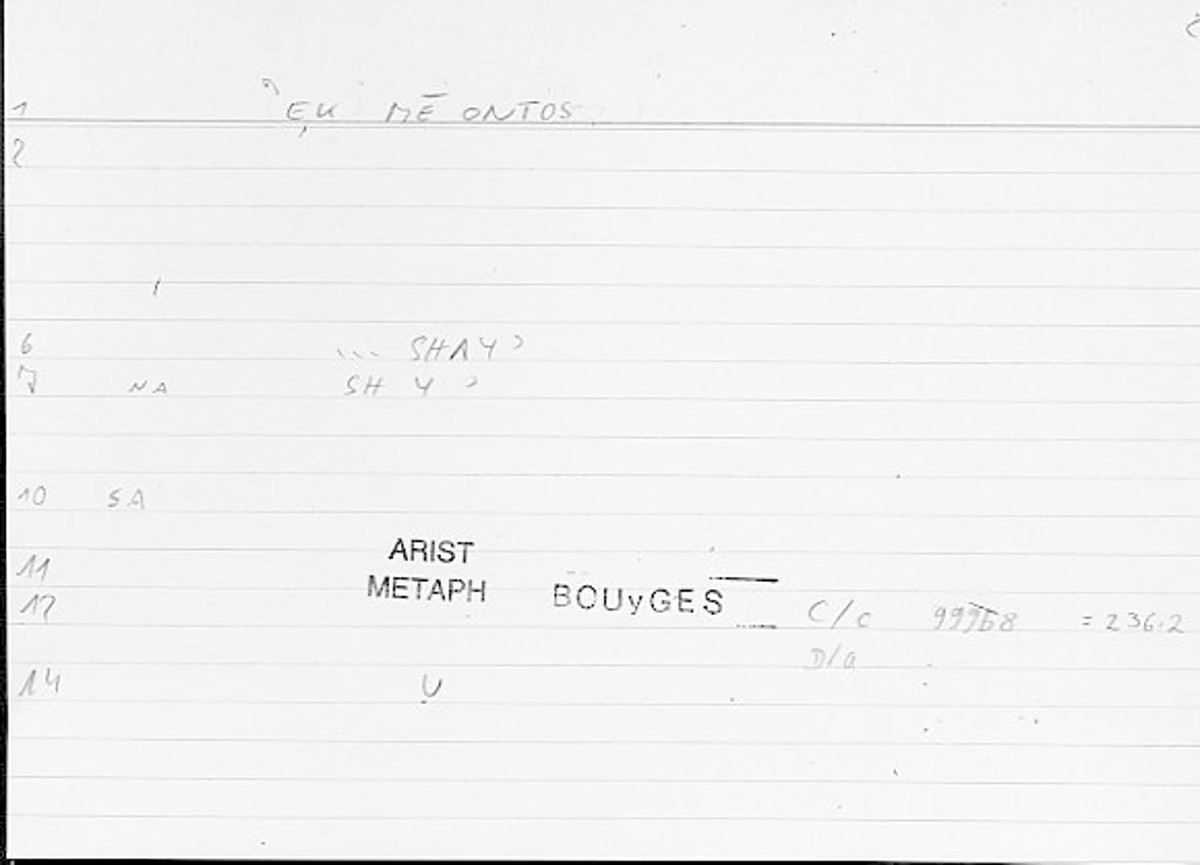 1 EK MĒ ONTOS
2
6 ... SHAY ᾿
7 NA SH Y ᾿
10 SA
ARIST
11
METAPH BOUyGES
12 C/c 99568 = 236.2
D/a
14 U